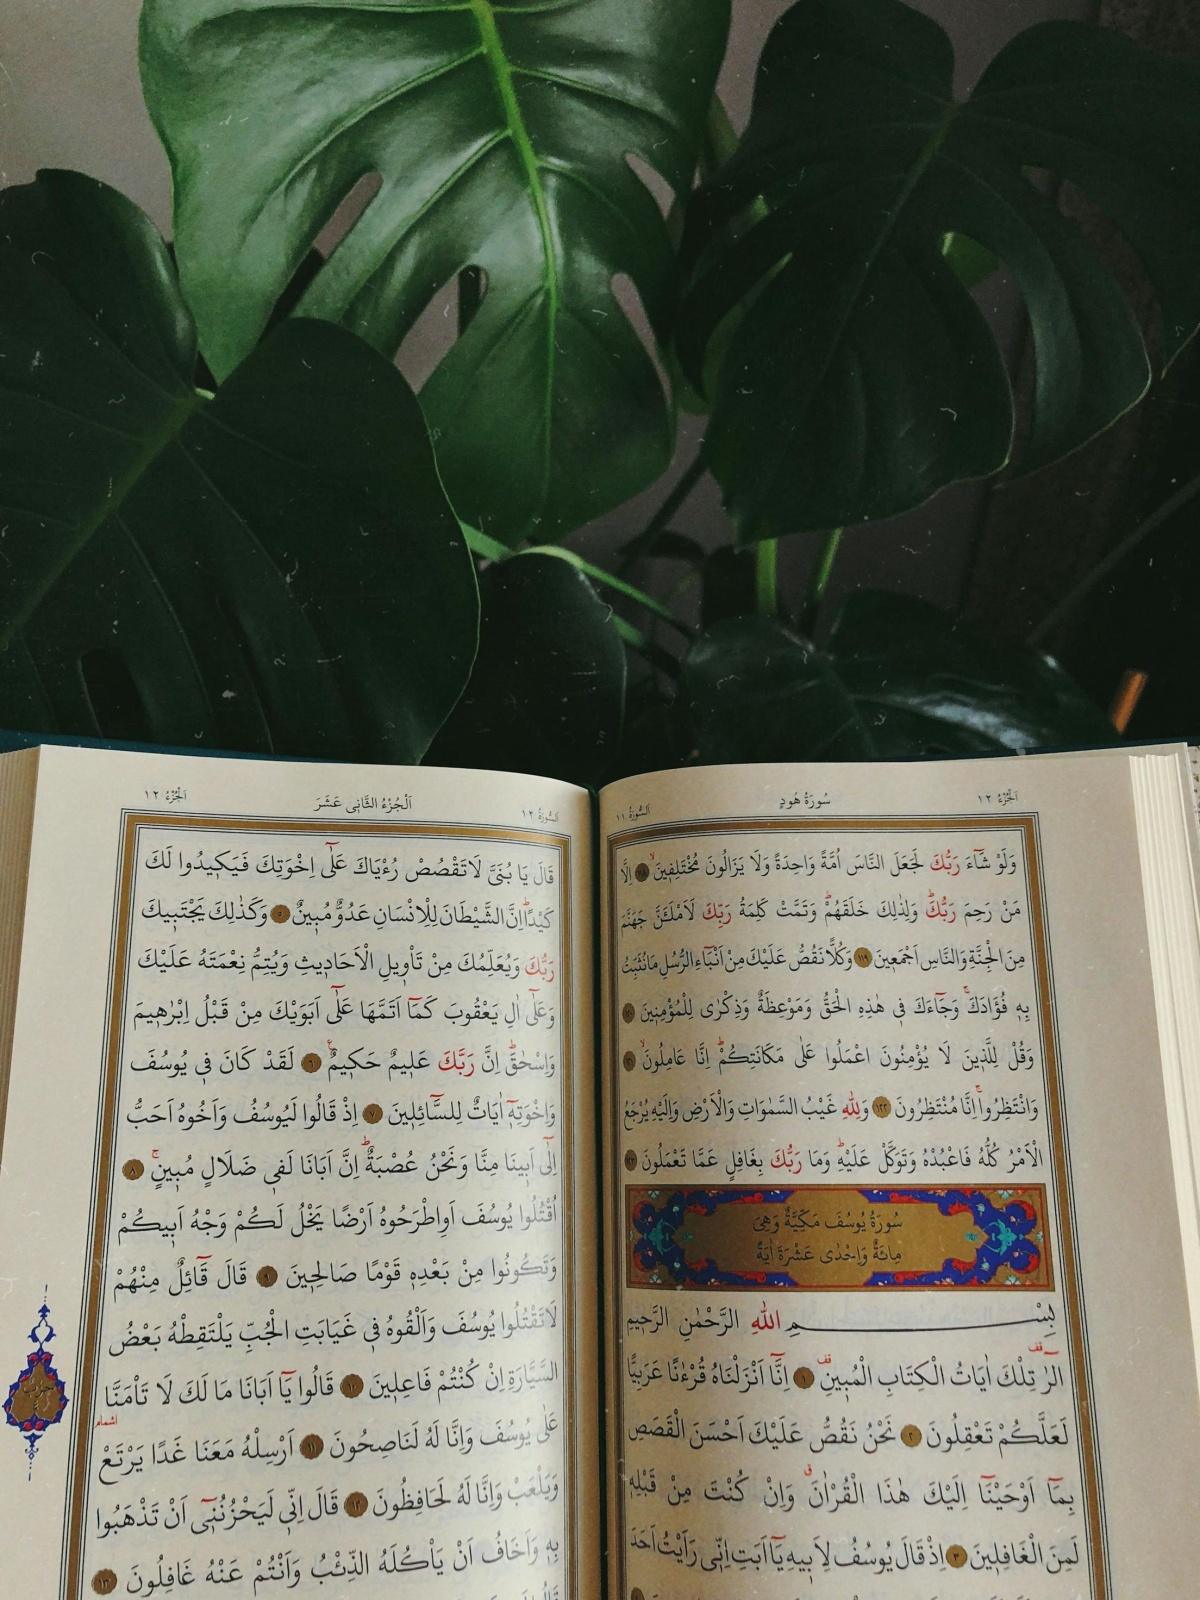 اَلْجُزْءُ ١٢
سُورَةُ هُودٍ
اَلسُّورَةُ ١١
وَلَوْ شَآءَ رَبُّكَ لَجَعَلَ النَّاسَ اُمَّةً وَاحِدَةً وَلَا يَزَالُونَ مُخْتَلِفٖينَۙ ١١٨ اِلَّا
مَنْ رَحِمَ رَبُّكَؕ وَلِذٰلِكَ خَلَقَهُمْؕ وَتَمَّتْ كَلِمَةُ رَبِّكَ لَاَمْلَـَٔنَّ جَهَنَّمَ
مِنَ الْجِنَّةِ وَالنَّاسِ اَجْمَعٖينَ ١١٩ وَكُلًّا نَقُصُّ عَلَيْكَ مِنْ اَنْبَٓاءِ الرُّسُلِ مَا نُثَبِّتُ
بِهٖ فُؤَادَكَۚ وَجَٓاءَكَ فٖى هٰذِهِ الْحَقُّ وَمَوْعِظَةٌ وَذِكْرٰى لِلْمُؤْمِنٖينَ ١٢٠
وَقُلْ لِلَّذٖينَ لَا يُؤْمِنُونَ اعْمَلُوا عَلٰى مَكَانَتِكُمْؕ اِنَّا عَامِلُونَۙ ١٢١
وَانْتَظِرُواۚ اِنَّا مُنْتَظِرُونَ ١٢٢ وَلِلّٰهِ غَيْبُ السَّمٰوَاتِ وَالْاَرْضِ وَاِلَيْهِ يُرْجَعُ
الْاَمْرُ كُلُّهُ فَاعْبُدْهُ وَتَوَكَّلْ عَلَيْهِؕ وَمَا رَبُّكَ بِغَافِلٍ عَمَّا تَعْمَلُونَ ١٢٣
سُورَةُ يُوسُفَ مَكِّيَّةٌ وَهِىَ
مِائَةٌ وَاِحْدٰى عَشْرَةَ اٰيَةً
بِسْمِ اللّٰهِ الرَّحْمٰنِ الرَّحٖيمِ
الٓرٰ تِلْكَ اٰيَاتُ الْكِتَابِ الْمُبٖينِ ١ اِنَّٓا اَنْزَلْنَاهُ قُرْءٰنًا عَرَبِيًّا
لَعَلَّكُمْ تَعْقِلُونَ ٢ نَحْنُ نَقُصُّ عَلَيْكَ اَحْسَنَ الْقَصَصِ
بِمَٓا اَوْحَيْنَٓا اِلَيْكَ هٰذَا الْقُرْاٰنَ وَاِنْ كُنْتَ مِنْ قَبْلِهٖ
لَمِنَ الْغَافِلٖينَ ٣ اِذْ قَالَ يُوسُفُ لِاَبٖيهِ يَٓا اَبَتِ اِنّٖى رَاَيْتُ اَحَدَ
اَلْجُزْءُ ١٢
اَلْجُزْءُ الثَّانٖى عَشَرَ
اَلسُّورَةُ ١٢
قَالَ يَا بُنَىَّ لَا تَقْصُصْ رُءْيَاكَ عَلٰٓى اِخْوَتِكَ فَيَكٖيدُوا لَكَ
كَيْدًاؕ اِنَّ الشَّيْطَانَ لِلْاِنْسَانِ عَدُوٌّ مُبٖينٌ ٥ وَكَذٰلِكَ يَجْتَبٖيكَ
رَبُّكَ وَيُعَلِّمُكَ مِنْ تَاْوٖيلِ الْاَحَادٖيثِ وَيُتِمُّ نِعْمَتَهُ عَلَيْكَ
وَعَلٰٓى اٰلِ يَعْقُوبَ كَمَٓا اَتَمَّهَا عَلٰٓى اَبَوَيْكَ مِنْ قَبْلُ اِبْرٰهٖيمَ
وَاِسْحٰقَؕ اِنَّ رَبَّكَ عَلٖيمٌ حَكٖيمٌ ٦ لَقَدْ كَانَ فٖى يُوسُفَ
وَاِخْوَتِهٖٓ اٰيَاتٌ لِلسَّٓائِلٖينَ ٧ اِذْ قَالُوا لَيُوسُفُ وَاَخُوهُ اَحَبُّ
اِلٰٓى اَبٖينَا مِنَّا وَنَحْنُ عُصْبَةٌؕ اِنَّ اَبَانَا لَفٖى ضَلَالٍ مُبٖينٍۚ ٨
اُقْتُلُوا يُوسُفَ اَوِ اطْرَحُوهُ اَرْضًا يَخْلُ لَكُمْ وَجْهُ اَبٖيكُمْ
وَتَكُونُوا مِنْ بَعْدِهٖ قَوْمًا صَالِحٖينَ ٩ قَالَ قَٓائِلٌ مِنْهُمْ
لَا تَقْتُلُوا يُوسُفَ وَاَلْقُوهُ فٖى غَيَابَتِ الْجُبِّ يَلْتَقِطْهُ بَعْضُ
السَّيَّارَةِ اِنْ كُنْتُمْ فَاعِلٖينَ ١٠ قَالُوا يَٓا اَبَانَا مَا لَكَ لَا تَاْمَنَّا
اشمام
عَلٰى يُوسُفَ وَاِنَّا لَهُ لَنَاصِحُونَ ١١ اَرْسِلْهُ مَعَنَا غَدًا يَرْتَعْ
وَيَلْعَبْ وَاِنَّا لَهُ لَحَافِظُونَ ١٢ قَالَ اِنّٖى لَيَحْزُنُنٖٓى اَنْ تَذْهَبُوا
بِهٖ وَاَخَافُ اَنْ يَاْكُلَهُ الذِّئْبُ وَاَنْتُمْ عَنْهُ غَافِلُونَ ١٣
حزب